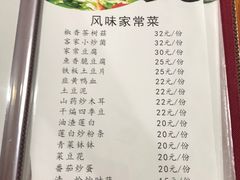 风味家常菜
椒香茶树菇 32元/份
客家小炒菌 32元/份
家常豆腐 30元/份
鱼香脆豆腐 25元/份
铁板土豆片 25元/份
韭黄鸭血 22元/份
土豆泥 22元/份
山药炒木耳 22元/份
干煸四季豆 22元/份
油渣莲白 20元/份
莲白炒粉条 20元/份
青菜钵钵 20元/份
菜豆花 20元/份
番茄炒蛋 20元/份